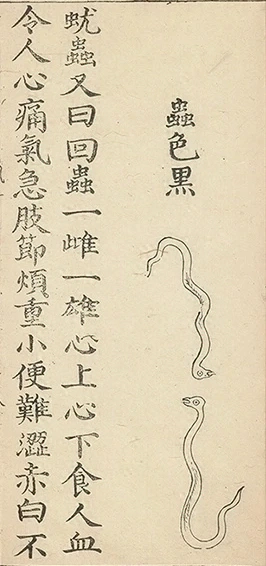 蟲色黑
蚘蟲又曰回蟲一雌一雄心上心下食人血
令人心痛氣急肢節煩重小便難澀赤白不